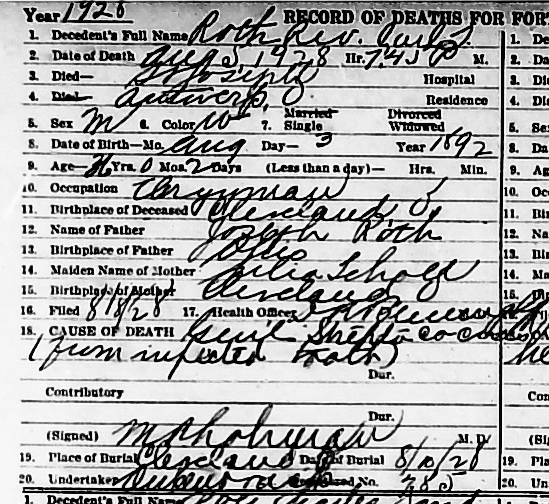 Year 1928 RECORD OF DEATHS FOR FOR
1. Decedent's Full Name Roth, Rev. 1. De
2. Date of Death Aug 5, 1928 Hr. 7.45 P M. 2. Da
3. Died— St Joseph Hospital 3. Di
4. Died— Antwerp, O Residence 4. Di
5. Sex M 6. Color W 7. Married Single Divorced Widowed 5. Se
8. Date of Birth—Mo. Aug Day— 3 Year 1892 8. Da
9. Age— Yrs. 0 Mos. 2 Days (Less than a day)— Hrs. Min. 9. Ag
10. Occupation Clergyman 10. Oc
11. Birthplace of Deceased Cleveland, O 11. Bir
12. Name of Father Joseph Roth 12. Na
13. Birthplace of Father Ohio 13. Bir
14. Maiden Name of Mother 14. Ma
15. Birthplace of Mother Cleveland 15.
16. Filed 8/8/28 17. Health Officer
18. CAUSE OF DEATH
(from infected tooth)
Dur.
Contributory Con
Dur.
(Signed) M. D. (Sig
19. Place of Burial Cleveland O Date of Burial 8/10/28 19. Pl
20. Undertaker No. 785 20. Un
1. Decedent's Full Name